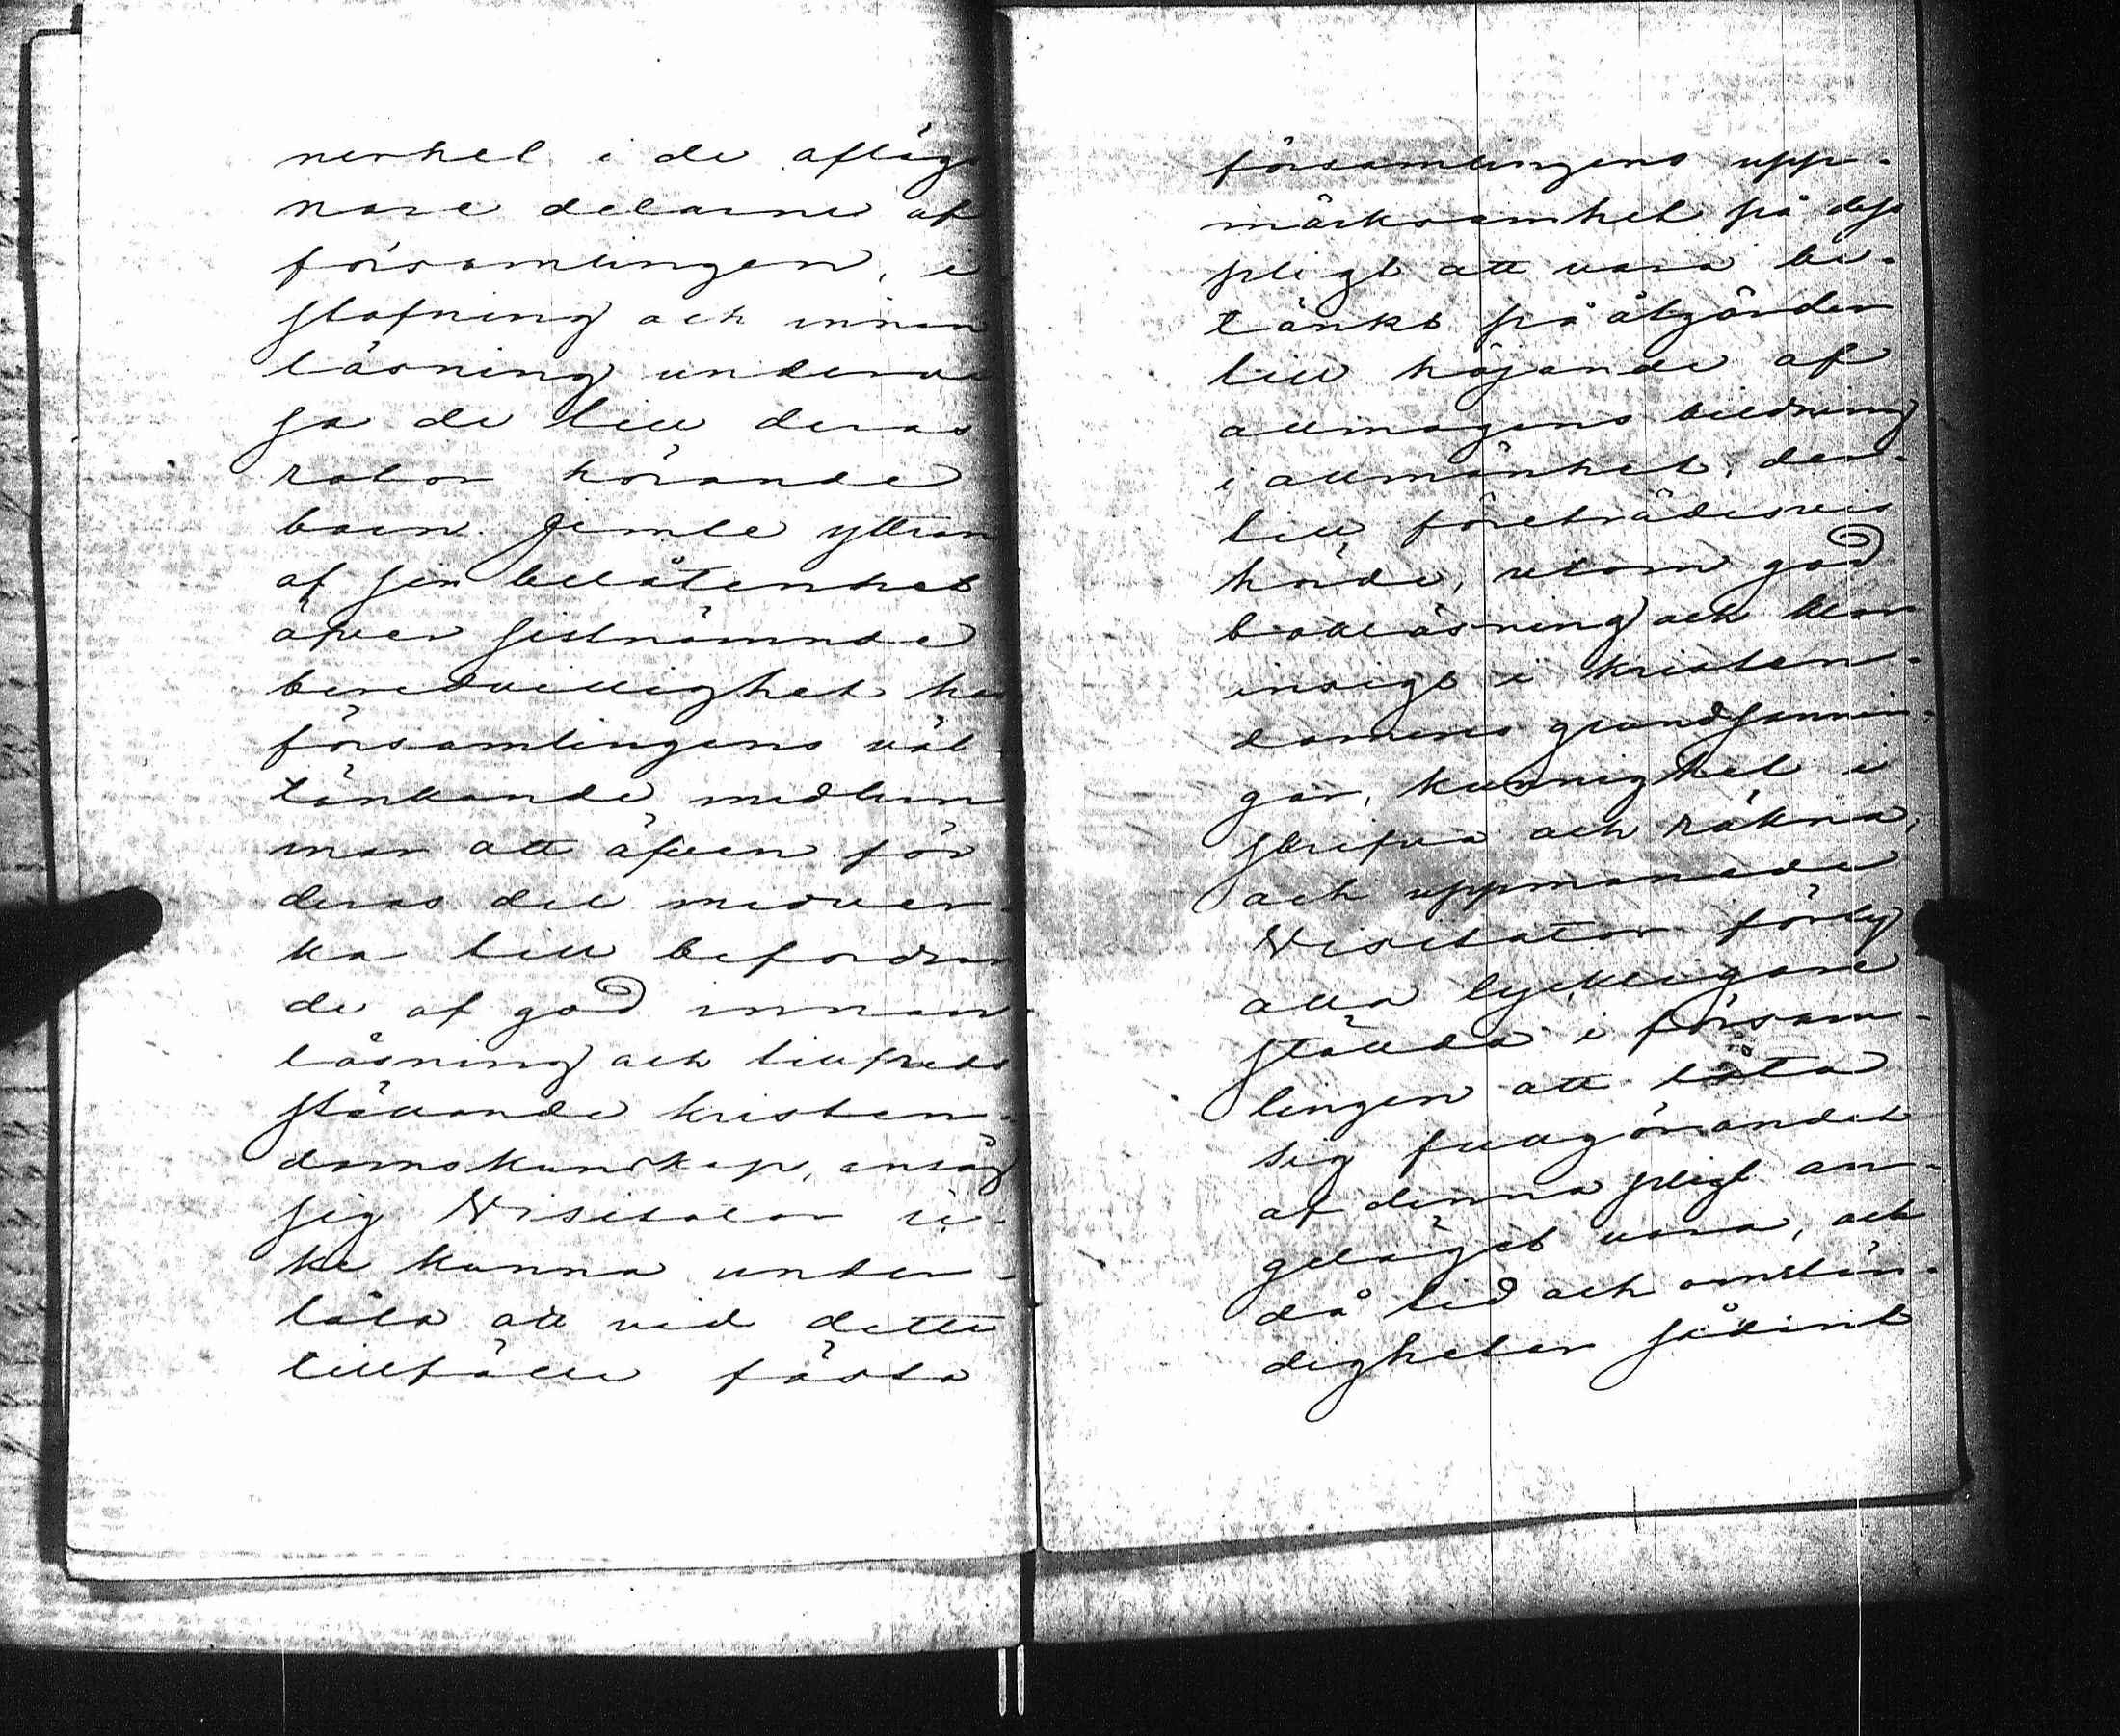 nerhet i de afläg
nare delarne af
församlingen, i
stafning och innan
läsning undervi
sa de till deras
rotor hörande
barn. Jemte yttran
af sin belåtenhet
öfver sistnämnde
beredvillighet hos
församlingens väl
tänkande medlem
mar att äfven för
deras del medver-
ka till befordran
de af god innan-
läsning och tillfreds
ställande kristen-
domskunskap, ansåg
sig Visitator ic-
ke kunna under-
låta att vid detta
tillfälle fästa
församlingens upp-
märksamhet på dess
pligt att vara be-
tänkt på åtgärder
till höjande af
allmogens bildning
i allmänhet, der-
till företrädesvis
hörde, utom god
bokläsning och klar
insigt i kristen-
domens grundsannin-
gar, kunnighet i
skrifva och räkna,
och uppmanade
Visitator förty
alla lyckligare
stälda i försam-
lingen att låta
sig fullgörandet
af denna pligt an-
geläget vara, och
då tid och omstän-
digheter sådant